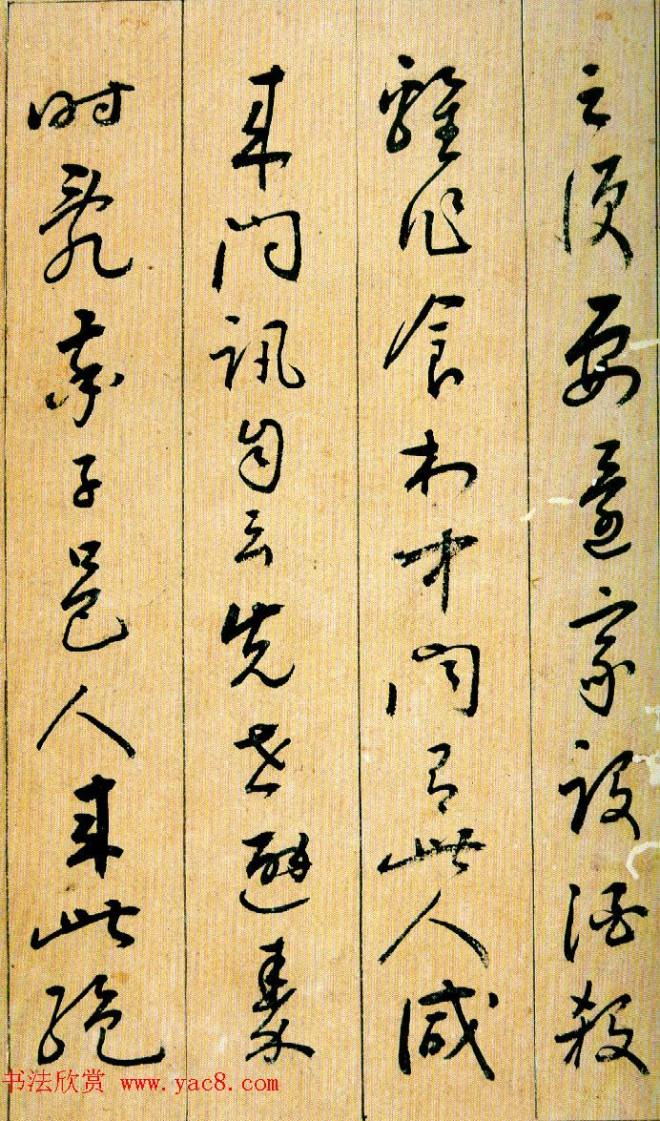 之便要還家設酒殺
雞作食村中聞有此人咸
來問訊自云先世避秦
時亂率子邑人來此絕
书法欣赏 www.yac8.com